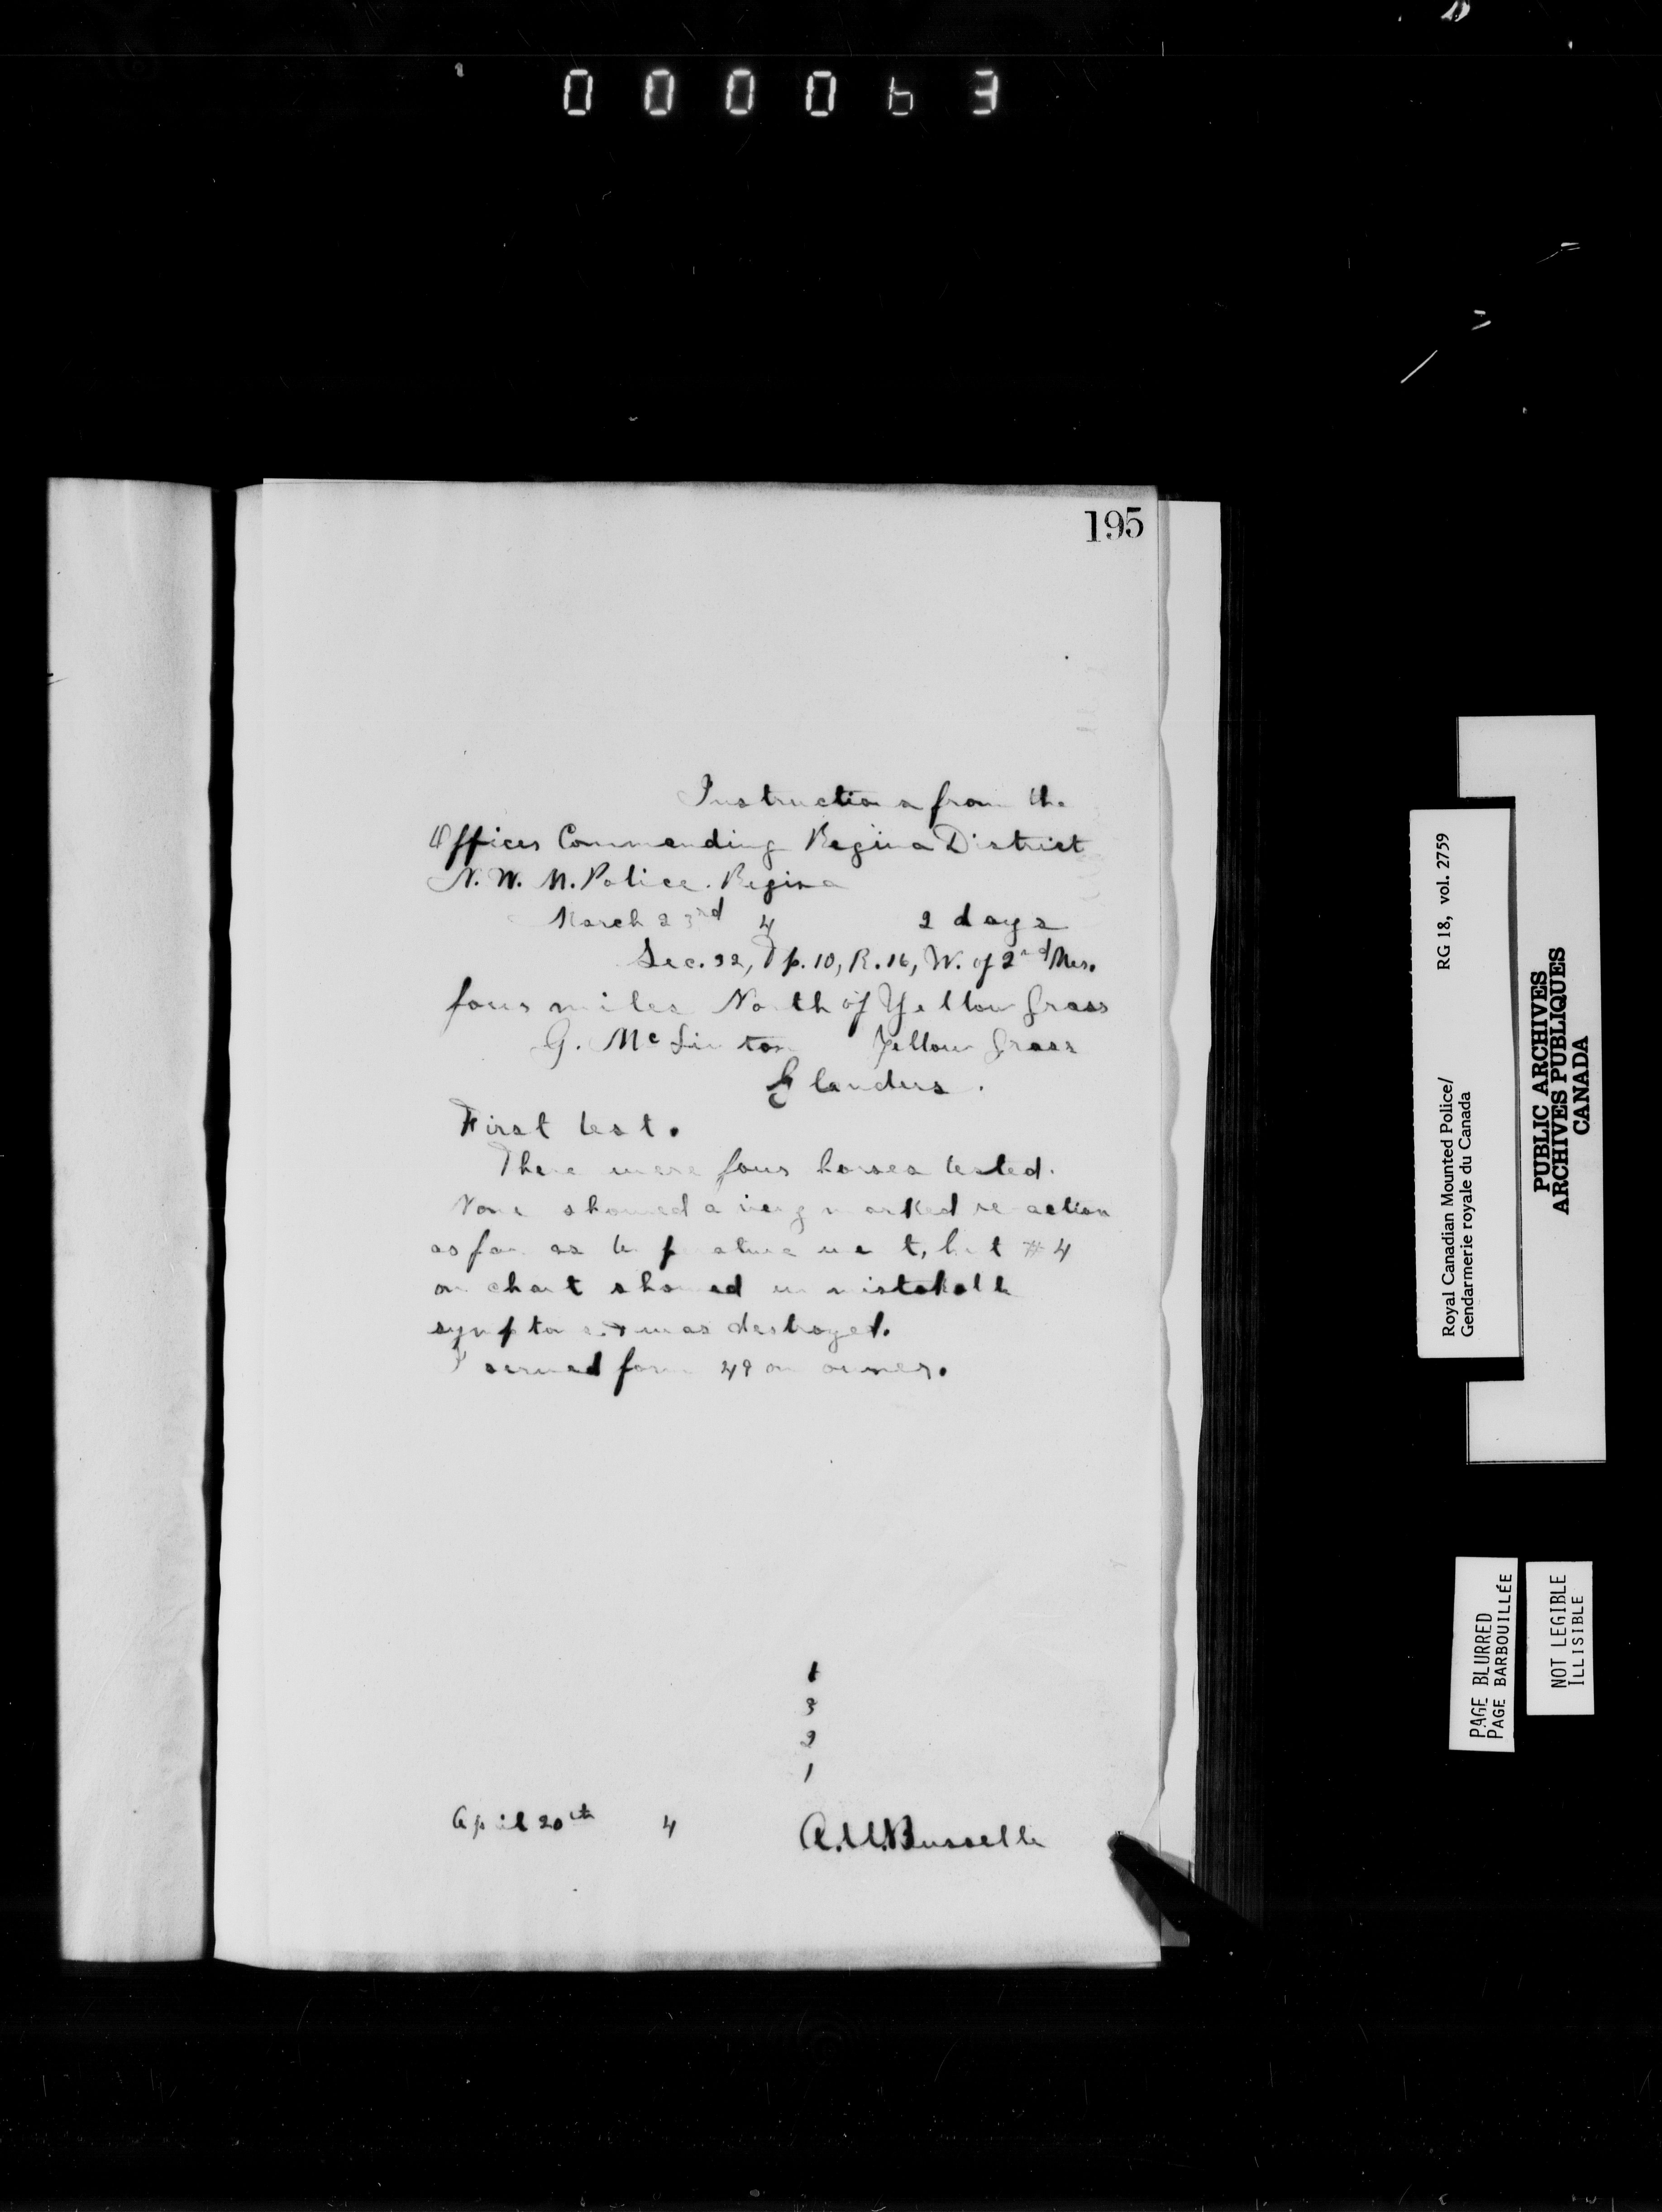 000063
195
Instructions from the
Officer Commanding Regina District
N. W. M. Police. Regina
March 23rd 4 2 days
Sec. 32, Tp. 10, R. 16, W. of 2nd Mer.
four miles North of Yellow Grass
G. McLinton Yellow Grass
Glanders.
First test.
There were four horses tested.
None showed a very marked re-action
as far as temperature went, but #4
on chart showed unmistakable
symptoms & was destroyed.
I served form 49 on owner.
1
3
2
1
April 20th 4
Royal Canadian Mounted Police/ RG 18, vol. 2759
Gendarmerie royale du Canada
PUBLIC ARCHIVES
ARCHIVES PUBLIQUES
CANADA
PAGE BLURRED
PAGE BARBOUILLÉE
NOT LEGIBLE
ILLISIBLE